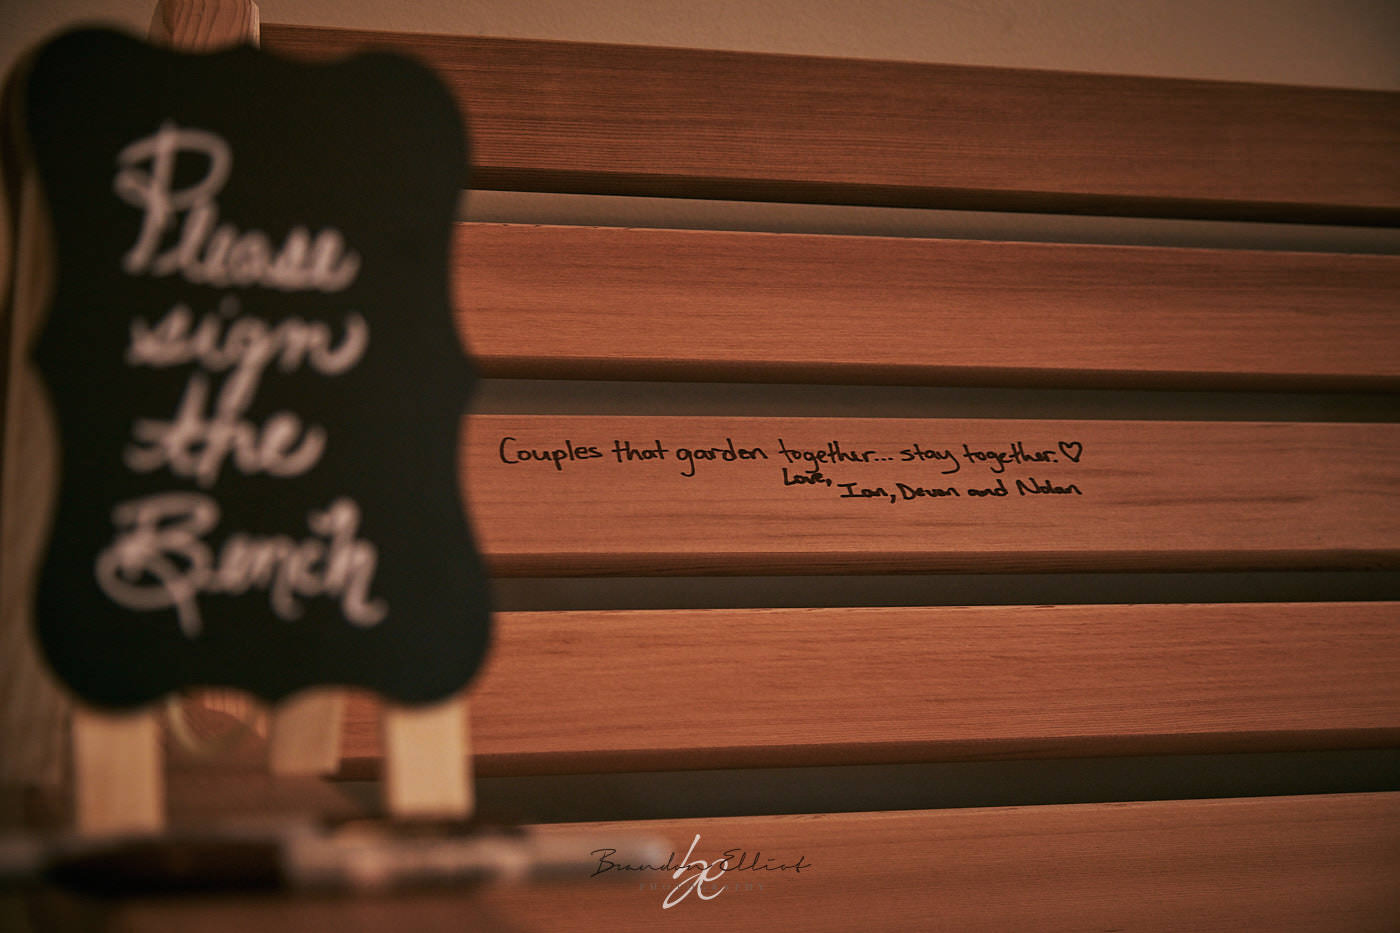 Please
sign
the
Bench
Couples that garden together... stay together.♡
Love,
Ian, Devan and Nolan
Brandon Elliot
be
PHOTOGRAPHY